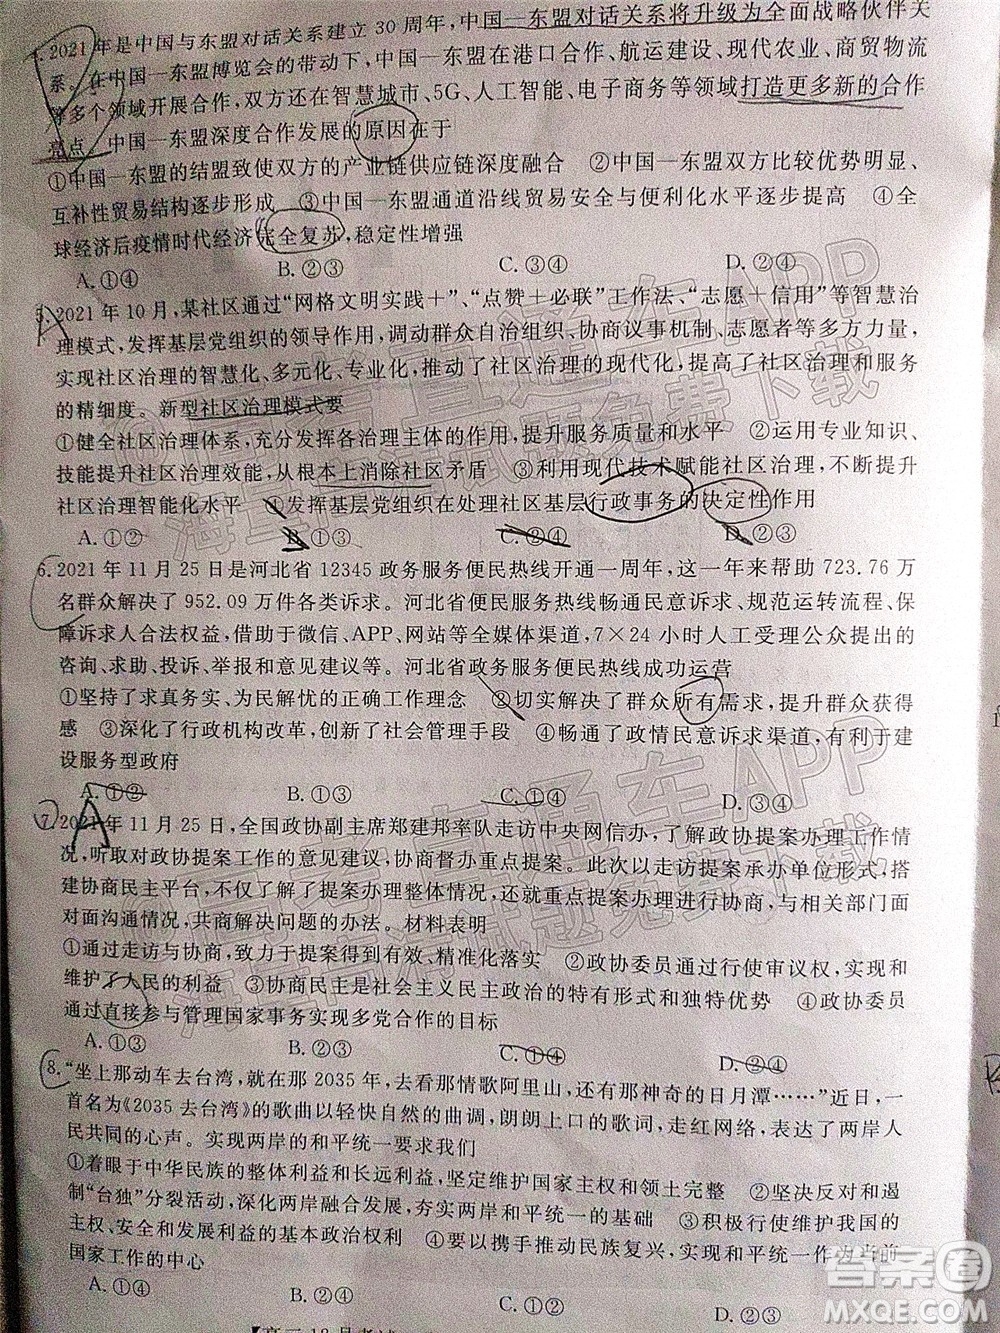 2021年是中国与东盟对话关系建立30周年,中国—东盟对话关系将升级为全面战略伙伴关
系。在中国—东盟博览会的带动下,中国—东盟在港口合作、航运建设、现代农业、商贸物流
等多个领域开展合作,双方还在智慧城市、5G、人工智能、电子商务等领域打造更多新的合作
亮点。中国—东盟深度合作发展的原因在于
①中国—东盟的结盟致使双方的产业链供应链深度融合 ②中国—东盟双方比较优势明显、
互补性贸易结构逐步形成 ③中国—东盟通道沿线贸易安全与便利化水平逐步提高 ④全
球经济后疫情时代经济完全复苏,稳定性增强
A.①④ B.②③ C.①③ D.②④
5.2021年10月,某社区通过“网格文明实践+”、“点赞+必联”工作法、“志愿+信用”等智慧治
理模式,发挥基层党组织的领导作用,调动群众自治组织、协商议事机制、志愿者等多方力量,
实现社区治理的智慧化、多元化、专业化,推动了社区治理的现代化,提高了社区治理和服务
的精细度。新型社区治理模式要
①健全社区治理体系,充分发挥各治理主体的作用,提升服务质量和水平 ②运用专业知识、
技能提升社区治理效能,从根本上消除社区矛盾 ③利用现代技术赋能社区治理,不断提升
社区治理智能化水平 ④发挥基层党组织在处理社区基层行政事务的决定性作用
A.①② B.①③ C.②④ D.②③
A
6.2021年11月25日是河北省12345政务服务便民热线开通一周年,这一年来帮助723.76万
名群众解决了952.09万件各类诉求。河北省便民服务热线畅通民意诉求、规范运转流程、保
障诉求人合法权益,借助于微信、APP、网站等全媒体渠道,7×24小时人工受理公众提出的
咨询、求助、投诉、举报和意见建议等。河北省政务服务便民热线成功运营
①坚持了求真务实、为民解忧的正确工作理念 ②切实解决了群众所有需求,提升群众获得
感 ③深化了行政机构改革,创新了社会管理手段 ④畅通政务民意诉求渠道,有利于建
设服务型政府
A.①② B.①③ C.①④ D.②③
A
7.2021年11月25日,全国政协副主席郑建邦率队走访中央网信办,了解政协提案办理工作情
况,听取对政协提案工作的意见建议,协商督办重点提案。此次以走访提案承办单位形式,搭
建协商民主平台,不仅了解了提案办理整体情况,还就重点提案办理进行协商,与相关部门面
对面沟通情况,共商解决问题的办法。材料表明
①通过走访与协商,能够使提案更加有效、精准化落实 ②政协委员通过行使审议权,实现和
维护了人民的利益 ③协商民主是社会主义民主政治的特有形式和独特优势 ④政协委员
通过直接参与管理国家事务实现多党合作的目标
A.①③ B.②③ C.①④ D.②④
8.“坐上那动车去台湾,就在那2035年,去看那情歌阿里山,还有那神奇的日月潭……”近日,一
首名为《2035去台湾》的歌曲以轻快自然的曲调,朗朗上口的歌词,走红网络,表达了两岸人
民共同的心声。实现两岸的和平统一要求我们
①着眼于中华民族的整体利益和长远利益,坚定维护国家主权和领土完整 ②坚决反对和遏
制“台独”分裂活动,深化两岸融合发展,夯实两岸和平统一的基础 ③积极行使维护我国的
主权、安全和发展利益的基本政治权利 ④要以携手推动民族复兴,实现和平统一作为当前
国家工作的中心
A.①④ B.②④ C.①② D.②③
海量高清试题免费下载
高考直通车APP
答案圈
MXQE.COM